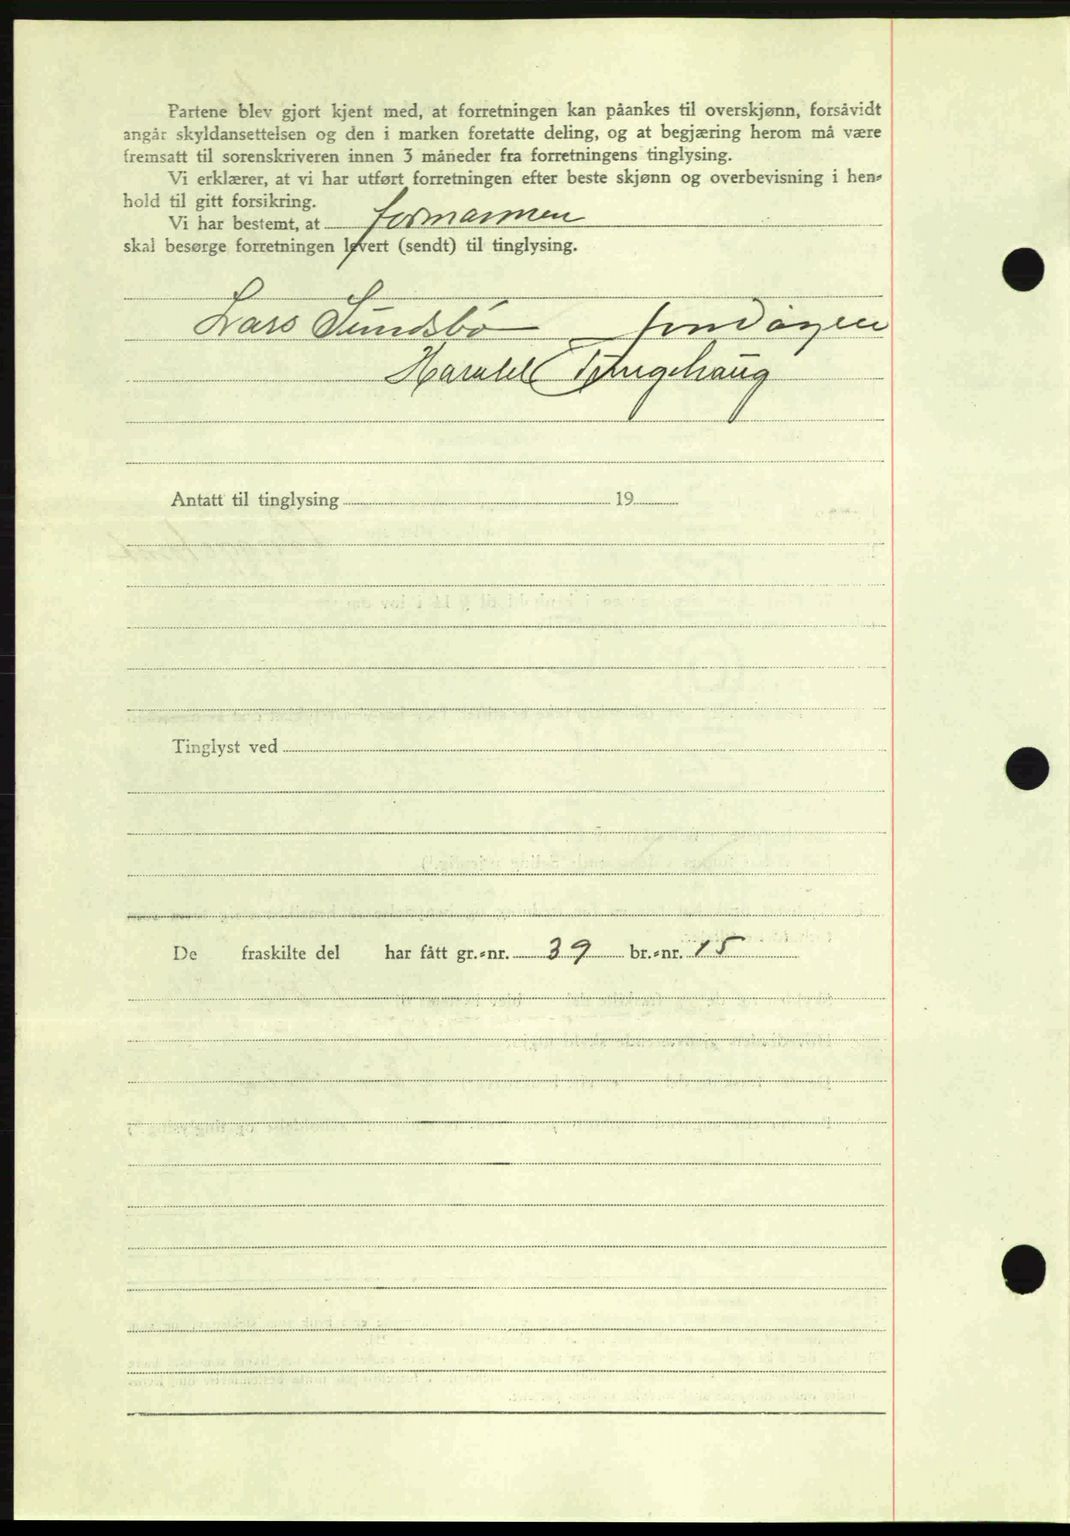 Partene blev gjort kjent med, at forretningen kan påankes til overskjønn, forsåvidt
angår skyldansettelsen og den i marken foretatte deling, og at begjæring herom må være
fremsatt til sorenskriveren innen 3 måneder fra forretningens tinglysing.
Vi erklærer, at vi har utført forretningen efter beste skjønn og overbevisning i hen-
hold til gitt forsikring.
Vi har bestemt, at formannen
skal besørge forretningen levert (sendt) til tinglysing.
Lars Sundsbø Jon Øyen
Harald Tungehaug
Antatt til tinglysing 19
Tinglyst ved
De fraskilte del har fått gr.-nr. 39 br.-nr. 15